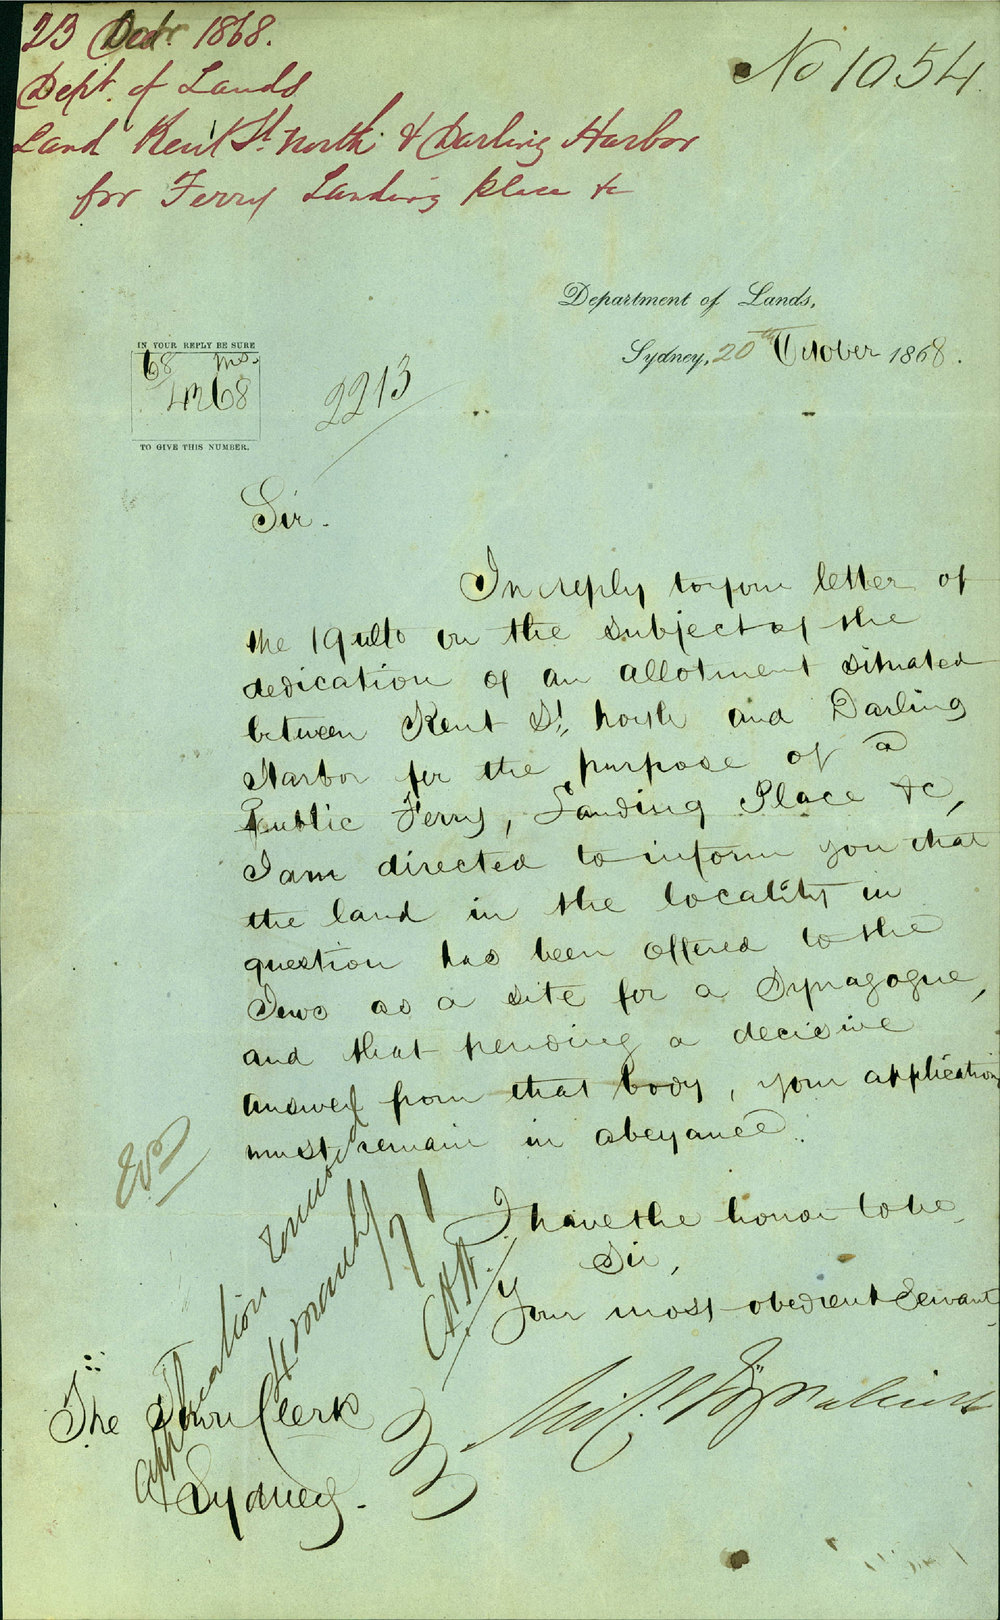 23 Octbr 1868.
Dept. of Lands
Land Kent St. North & Darling Harbor
for Ferry Landing place &c
No 1054
Department of Lands,
Sydney, 20th October 1868.
IN YOUR REPLY BE SURE
68 Ms.
4268
TO GIVE THIS NUMBER.
2213
Sir.
In reply to your letter of
the 19 ulto on the subject of the
dedication of an allotment situated
between Kent St. North and Darling
Harbor for the purpose of a
Public Ferry, Landing Place &c,
I am directed to inform you that
the land in the locality in
question has been offered to the
Jews as a site for a Synagogue,
and that pending a decisive
answer from that body, your application
must remain in abeyance.
I have the honor to be,
Sir,
Your most obedient Servant,
The Town Clerk
Sydney.
application renewed
4 March